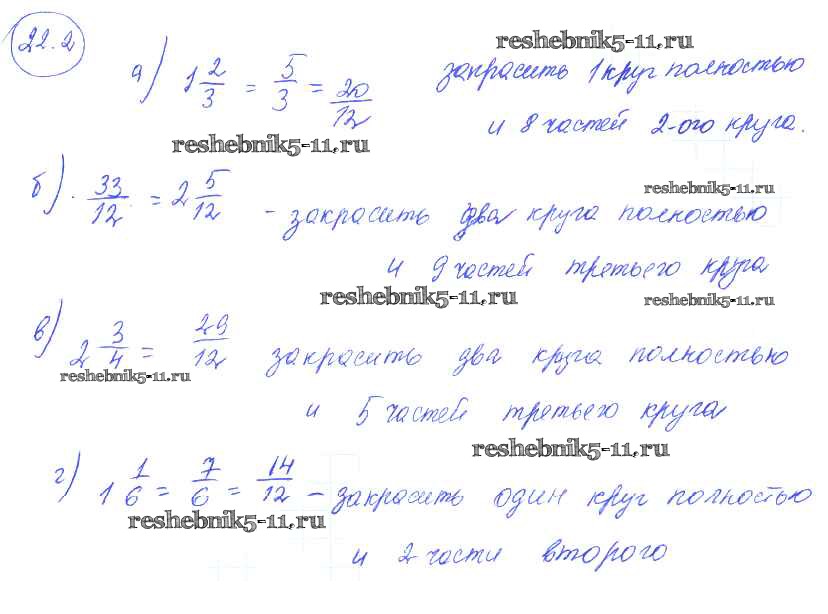 22.2
reshebnik5-11.ru
а) 1 2/3 = 5/3 = 20/12 закрасить 1 круг полностью
и 8 частей 2-ого круга.
reshebnik5-11.ru
б) 33/12 = 2 5/12 - закрасить два круга полностью
reshebnik5-11.ru
и 9 частей третьего круга
reshebnik5-11.ru
reshebnik5-11.ru
в) 2 3/4 = 29/12 закрасить два круга полностью
reshebnik5-11.ru
и 5 частей третьего круга
reshebnik5-11.ru
г) 1 1/6 = 7/6 = 14/12 - закрасить один круг полностью
reshebnik5-11.ru
и 2 части второго